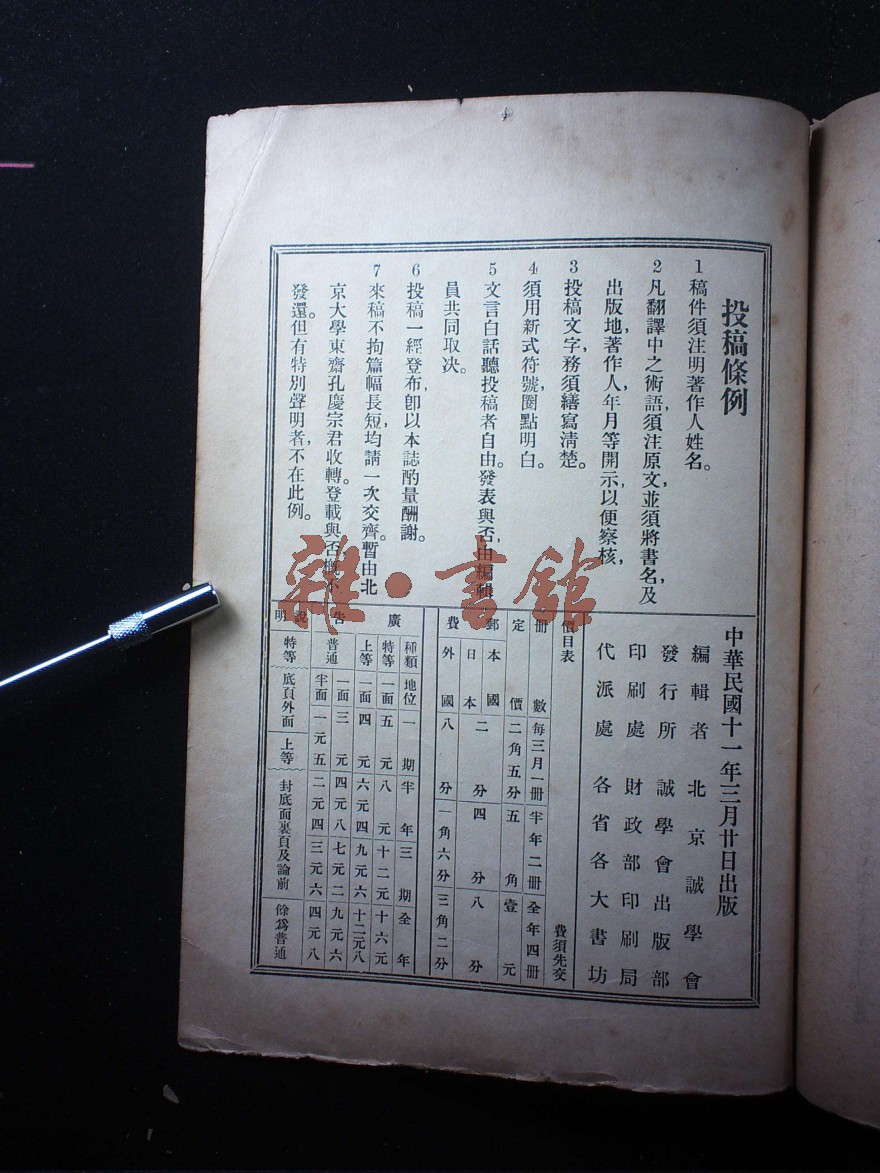 投稿條例
1 稿件須注明著作人姓名。
2 凡翻譯中之術語，須注原文，並須將書名，及
出版地，著作人，年月等開示，以便察核，
3 投稿文字，務須繕寫淸楚。
4 須用新式符號，圈點明白。
5 文言白話聽投稿者自由。發表與否，由編輯
員共同取决。
6 投稿一經登布，卽以本誌酌量酬謝。
7 來稿不拘篇幅長短，均請一次交齊。暫由北
京大學東齋孔慶宗君收轉。登載與否，概不
發還。但有特別聲明者，不在此例。
中華民國十一年三月廿日出版
編輯者 北京誠學會
發行所 誠學會出版部
印刷處 財政部印刷局
代派處 各省各大書坊
價目表 費須先交
册數 每三月一册 半年二册 全年四册
定價 二角五分 五角 壹元
郵費 本國 日本 二分 四分 八分
外國 八分 一角六分 三角二分
廣告
種類 地位 一期 半年 三期 全年
特等 一面 五元 八元 十二元 十六元
上等 一面 四元 六元四 九元六 十二元八
普通 一面 三元 四元八 七元二 九元六
半面 一元五 二元四 三元六 四元八
說明 特等 底頁外面 上等 封底面裏頁及論前 餘爲普通
雜·書館